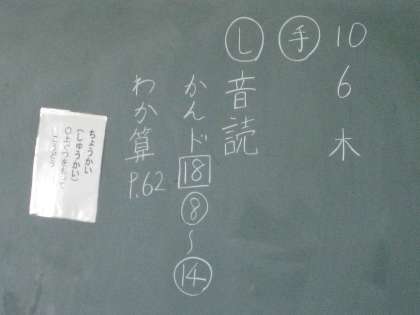 10 6 木
手
し 音読
かんド 18 8 〜 14
わか算 P.62
ちょうかい
(しゅうかい)